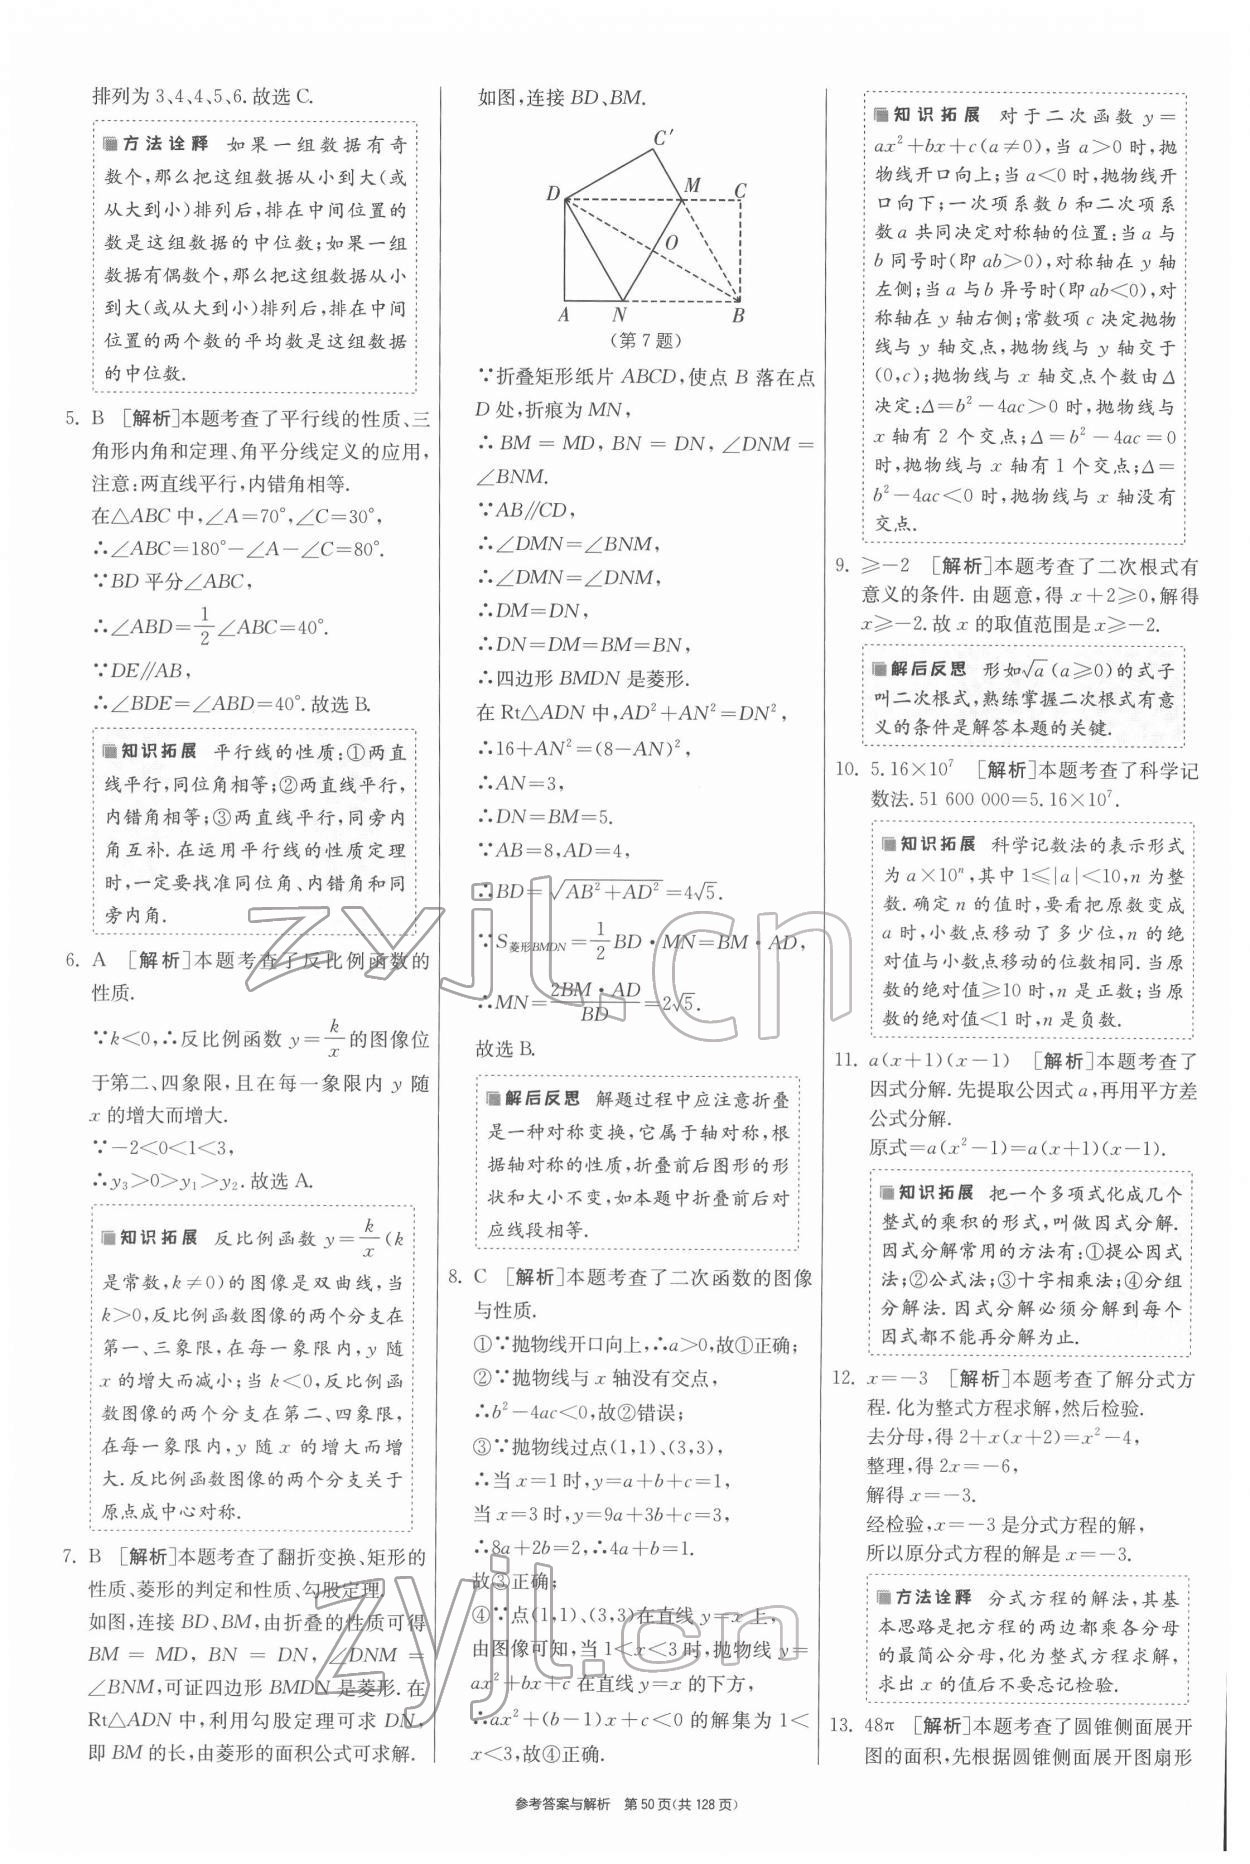 排列为 3、4、4、5、6. 故选 C.
方法诠释 如果一组数据有奇
数个,那么把这组数据从小到大(或
从大到小)排列后,排在中间位置的
数是这组数据的中位数;如果一组
数据有偶数个,那么把这组数据从小
到大(或从大到小)排列后,排在中间
位置的两个数的平均数是这组数据
的中位数.
5. B [解析]本题考查了平行线的性质、三
角形内角和定理、角平分线定义的应用,
注意:两直线平行,内错角相等.
在△ABC 中,∠A=70°,∠C=30°,
∴∠ABC=180°-∠A-∠C=80°.
∵BD 平分∠ABC,
∴∠ABD=1/2∠ABC=40°.
∵DE//AB,
∴∠BDE=∠ABD=40°. 故选 B.
知识拓展 平行线的性质:①两直
线平行,同位角相等;②两直线平行,
内错角相等;③两直线平行,同旁内
角互补. 在运用平行线的性质定理
时,一定要找准同位角、内错角和同
旁内角.
6. A [解析]本题考查了反比例函数的
性质.
∵k<0,∴反比例函数 y=k/x的图像位
于第二、四象限,且在每一象限内 y 随
x 的增大而增大.
∵-2<0<1<3,
∴y₃>0>y₁>y₂. 故选 A.
知识拓展 反比例函数 y=k/x(k
是常数,k≠0)的图像是双曲线,当
k>0,反比例函数图像的两个分支在
第一、三象限,在每一象限内,y 随
x 的增大而减小;当 k<0,反比例函
数图像的两个分支在第二、四象限,
在每一象限内,y 随 x 的增大而增
大. 反比例函数图像的两个分支关于
原点成中心对称.
7. B [解析]本题考查了翻折变换、矩形的
性质、菱形的判定和性质、勾股定理.
如图,连接 BD、BM,由折叠的性质可得
BM = MD, BN = DN, ∠DNM =
∠BNM,可证四边形 BMDN 是菱形. 在
Rt△ADN 中,利用勾股定理可求 DN,
即 BM 的长,由菱形的面积公式可求解.
如图,连接 BD、BM.
C′
D
M
C
O
A
N
B
(第 7 题)
∵折叠矩形纸片 ABCD,使点 B 落在点
D 处,折痕为 MN,
∴BM = MD, BN = DN, ∠DNM =
∠BNM.
∵AB//CD,
∴∠DMN=∠BNM,
∴∠DMN=∠DNM,
∴DM=DN,
∴DN=DM=BM=BN,
∴四边形 BMDN 是菱形.
在 Rt△ADN 中,AD²+AN²=DN²,
∴16+AN²=(8-AN)²,
∴AN=3,
∴DN=BM=5.
∵AB=8,AD=4,
∴BD=√(AB²+AD²)=4√5.
∵S菱形BMDN=1/2BD·MN=BM·AD,
∴MN=2BM·AD/BD=2√5.
故选 B.
解后反思 解题过程中应注意折叠
是一种对称变换,它属于轴对称,根
据轴对称的性质,折叠前后图形的形
状和大小不变,如本题中折叠前后对
应线段相等.
8. C [解析]本题考查了二次函数的图像
与性质.
①∵抛物线开口向上,∴a>0,故①正确;
②∵抛物线与 x 轴没有交点,
∴b²-4ac<0,故②错误;
③∵抛物线过点(1,1)、(3,3),
∴当 x=1 时,y=a+b+c=1,
当 x=3 时,y=9a+3b+c=3,
∴8a+2b=2,∴4a+b=1.
故③正确;
④∵点(1,1)、(3,3)在直线 y=x 上,
由图像可知,当 1<x<3 时,抛物线 y=
ax²+bx+c 在直线 y=x 的下方,
∴ax²+(b-1)x+c<0 的解集为 1<
x<3,故④正确.
知识拓展 对于二次函数 y=
ax²+bx+c(a≠0),当 a>0 时,抛
物线开口向上;当 a<0 时,抛物线开
口向下;一次项系数 b 和二次项系
数 a 共同决定对称轴的位置:当 a 与
b 同号时(即 ab>0),对称轴在 y 轴
左侧;当 a 与 b 异号时(即 ab<0),对
称轴在 y 轴右侧;常数项 c 决定抛物
线与 y 轴交点,抛物线与 y 轴交于
(0,c);抛物线与 x 轴交点个数由 Δ
决定:Δ=b²-4ac>0 时,抛物线与
x 轴有 2 个交点;Δ=b²-4ac=0
时,抛物线与 x 轴有 1 个交点;Δ=
b²-4ac<0 时,抛物线与 x 轴没有
交点.
9. ≥-2 [解析]本题考查了二次根式有
意义的条件. 由题意,得 x+2≥0,解得
x≥-2. 故 x 的取值范围是 x≥-2.
解后反思 形如√a(a≥0)的式子
叫二次根式,熟练掌握二次根式有意
义的条件是解答本题的关键.
10. 5.16×10⁷ [解析]本题考查了科学记
数法. 51 600 000=5.16×10⁷.
知识拓展 科学记数法的表示形式
为 a×10ⁿ,其中 1≤|a|<10,n 为整
数. 确定 n 的值时,要看把原数变成
a 时,小数点移动了多少位,n 的绝
对值与小数点移动的位数相同. 当原
数的绝对值≥10 时,n 是正数;当原
数的绝对值<1 时,n 是负数.
11. a(x+1)(x-1) [解析]本题考查了
因式分解. 先提取公因式 a,再用平方差
公式分解.
原式=a(x²-1)=a(x+1)(x-1).
知识拓展 把一个多项式化成几个
整式的乘积的形式,叫做因式分解.
因式分解常用的方法有:①提公因式
法;②公式法;③十字相乘法;④分组
分解法. 因式分解必须分解到每个
因式都不能再分解为止.
12. x=-3 [解析]本题考查了解分式方
程. 化为整式方程求解,然后检验.
去分母,得 2+x(x+2)=x²-4,
整理,得 2x=-6,
解得 x=-3.
经检验,x=-3 是分式方程的解,
所以原分式方程的解是 x=-3.
方法诠释 分式方程的解法,其基
本思路是把方程的两边都乘各分母
的最简公分母,化为整式方程求解,
求出 x 的值后不要忘记检验.
13. 48π [解析]本题考查了圆锥侧面展开
图的面积,先根据圆锥侧面展开图扇形
参考答案与解析 第 50 页(共 128 页)
zyjl.cn
zyjl.cn